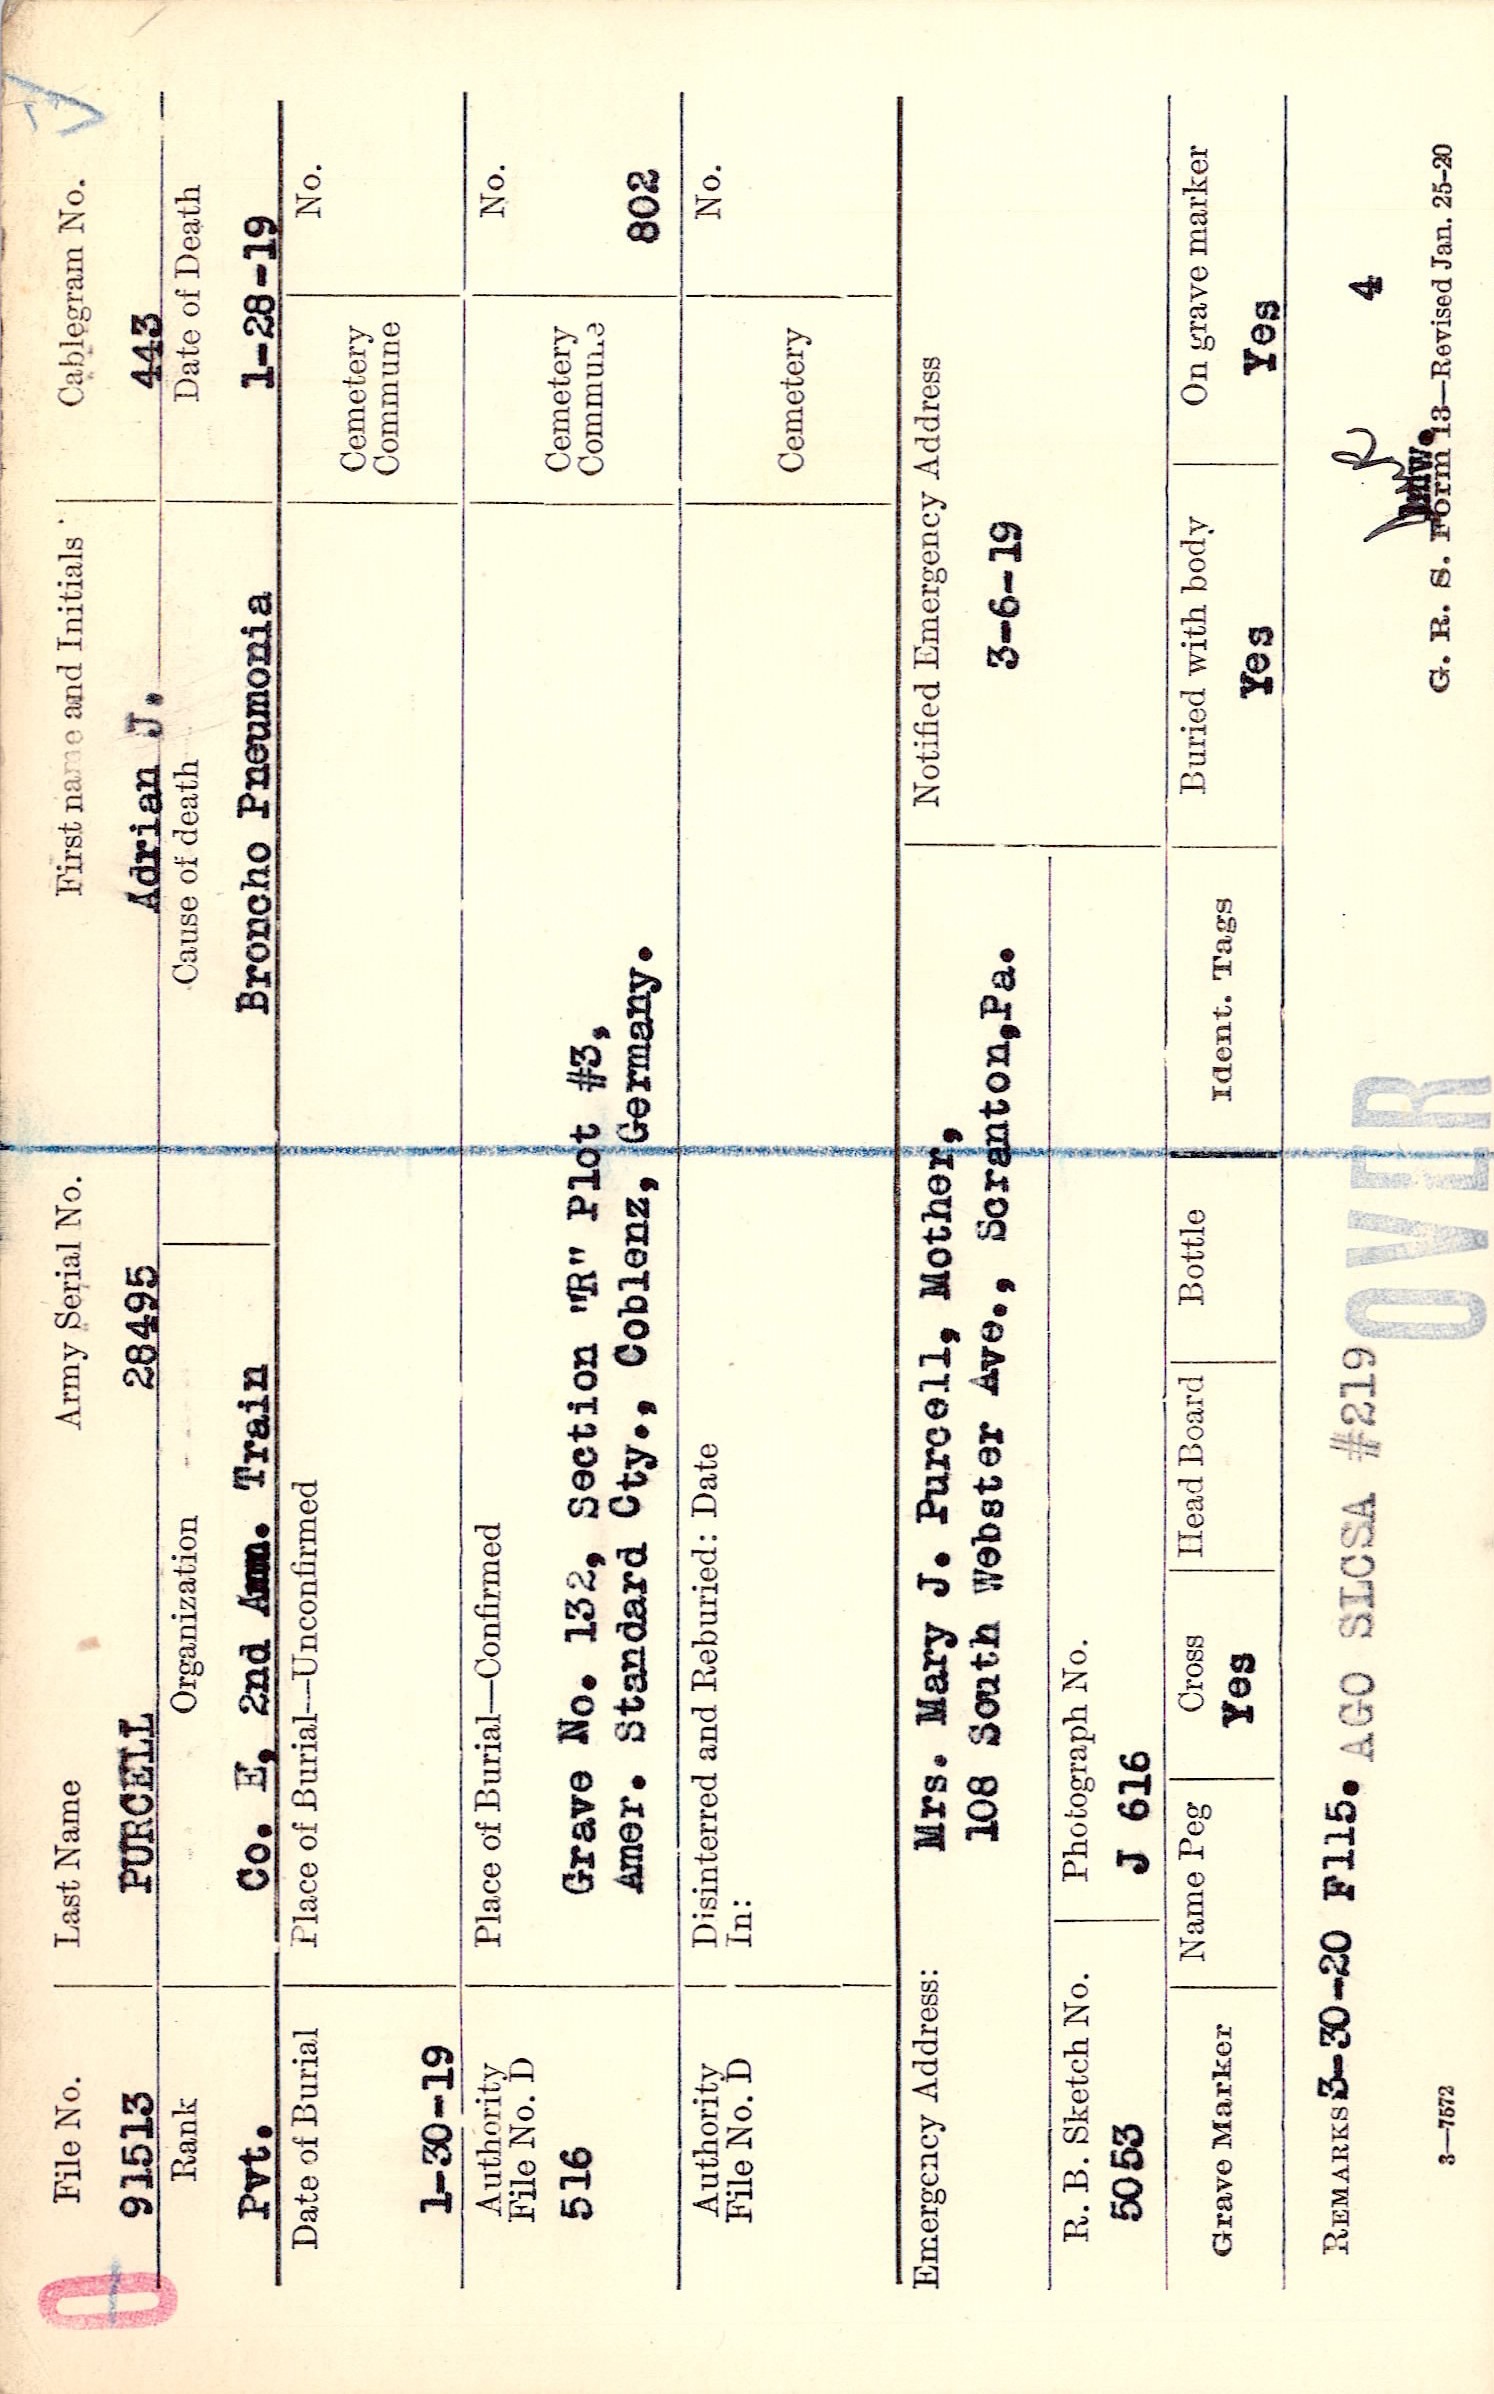 File No. Last Name Army Serial No. First name and Initials Cablegram No.
91513 PURCELL 28495 Adrian J. 443
Rank Organization Cause of death Date of Death
Pvt. Co. E, 2nd Amm. Train Broncho Pneumonia 1-28-19
Date of Burial Place of Burial—Unconfirmed No.
Cemetery
Commune
1-30-19
Authority Place of Burial—Confirmed No.
File No. D
Cemetery
Commune
516 Grave No. 132, Section "R" Plot #3,
Amer. Standard Cty., Coblenz, Germany. 802
Authority Disinterred and Reburied: Date No.
File No. D In:
Cemetery
Emergency Address: Mrs. Mary J. Purcell, Mother, Notified Emergency Address
108 South Webster Ave., Scranton,Pa. 3-6-19
R. B. Sketch No. Photograph No.
5053 J 616
Grave Marker Name Peg Cross Head Board Bottle Ident. Tags Buried with body On grave marker
Yes Yes Yes
REMARKS 3-30-20 F115. AGO SLCSA #219 4
OVER
3—7572 G. R. S. Form 13—Revised Jan. 25-20